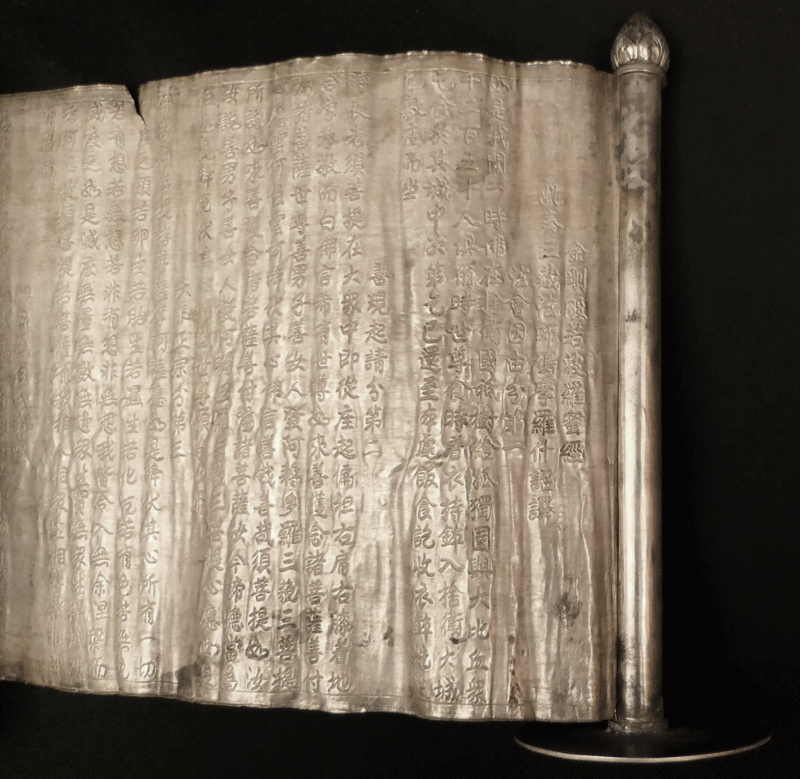 金剛般若波羅蜜經
姚秦三藏法師鳩摩羅什詔譯
法會因由分第一
如是我聞一時佛在舍衛國祇樹給孤獨園與大比丘衆
千二百五十人俱爾時世尊食時着衣持鉢入捨衛大城
乞食於其城中次第乞已還至本處飯食訖收衣鉢洗足
已敷座而坐
善現起請分第二
時長老須菩提在大衆中即從座起偏袒右肩右膝着地
合掌恭敬而白佛言希有世尊如來善護念諸菩薩善付
囑諸菩薩世尊善男子善女人發阿耨多羅三藐三菩提
心應云何住云何降伏其心佛言善哉善哉須菩提如汝
所說如來善護念諸菩薩善付囑諸菩薩汝今諦聽當爲
汝說善男子善女人發阿耨多羅三藐三菩提心應如是
住如是降伏其
大乘正宗分第三
菩薩摩訶薩應如是降伏其心所有一切
之類若卵生若胎生若濕生若化生若有色若無色
若有想若無想若非有想非無想我皆令入無余涅槃而
滅度之如是滅度無量無數無邊衆生實無衆生得滅度
者何以故須菩提若菩薩有我相人相衆生相壽者相